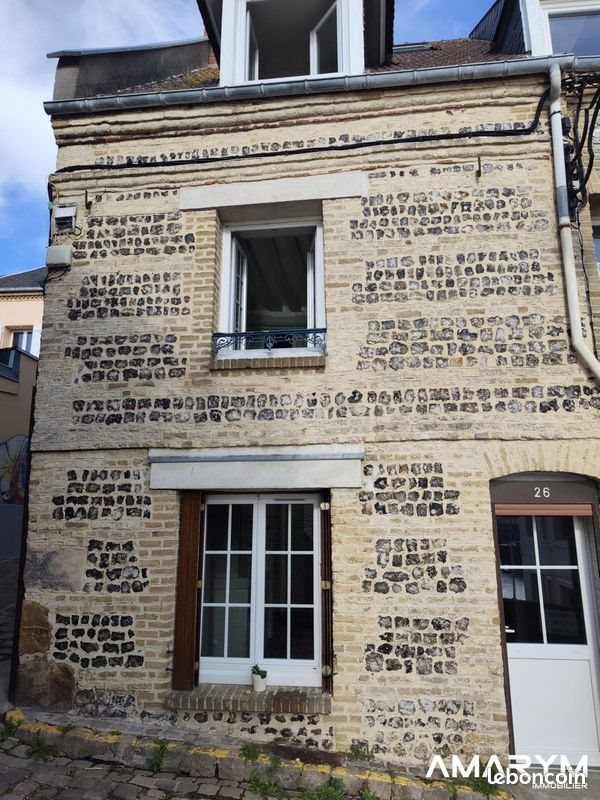 26
AMARYM
IMMOBILIER
leboncoin